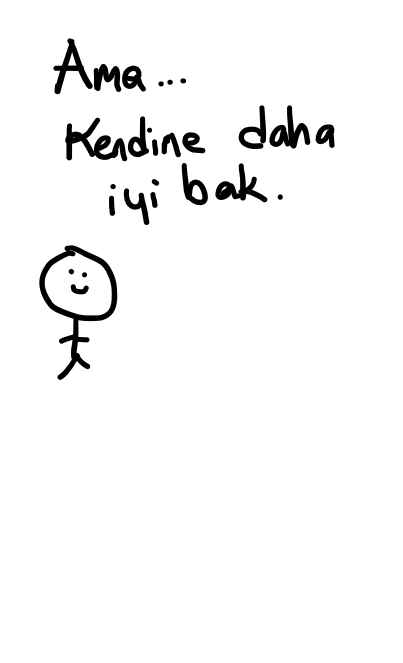 Ama...
Kendine daha
iyi bak.